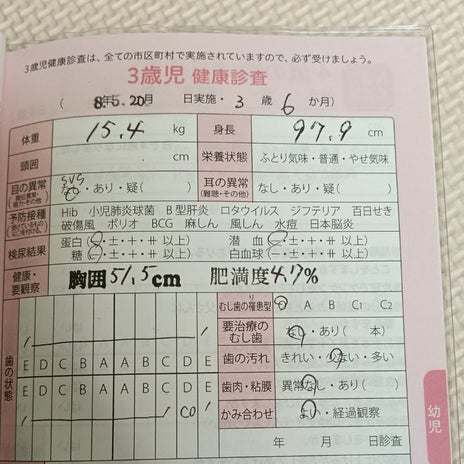 3歳児健康診査は、全ての市区町村で実施されていますので、必ず受けましょう。
3歳児 健康診査
( 8年5.20月 日実施・3歳6か月)
体重 15.4 kg 身長 97.9 cm
頭囲 cm 栄養状態 ふとり気味・普通・やせ気味
目の異常 SVS なし・あり・疑( ) 耳の異常 (難聴・その他) なし・あり・疑( )
予防接種 Hib 小児肺炎球菌 B型肝炎 ロタウイルス ジフテリア 百日せき
破傷風 ポリオ BCG 麻しん 風しん 水痘 日本脳炎
検尿結果 蛋白(-・±・+・卄以上) 潜血(-・±・+・卄以上)
糖(-・±・+・卄以上) 白血球(-・±・+・卄以上)
健康・要観察 胸囲 51.5cm 肥満度 4.7%
むし歯の罹患型 O A B C₁ C₂
要治療のむし歯 なし・あり( 本)
歯の状態 E D C B A A B C D E 歯の汚れ きれい・少ない・多い
E D C B A A B C D E 歯肉・粘膜 異常なし・あり( )
/ / CO / かみ合わせ よい・経過観察
年 月 日診査
幼児